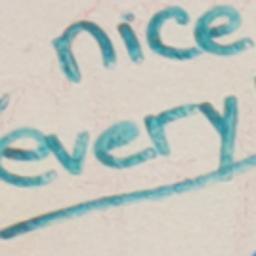 nice
every